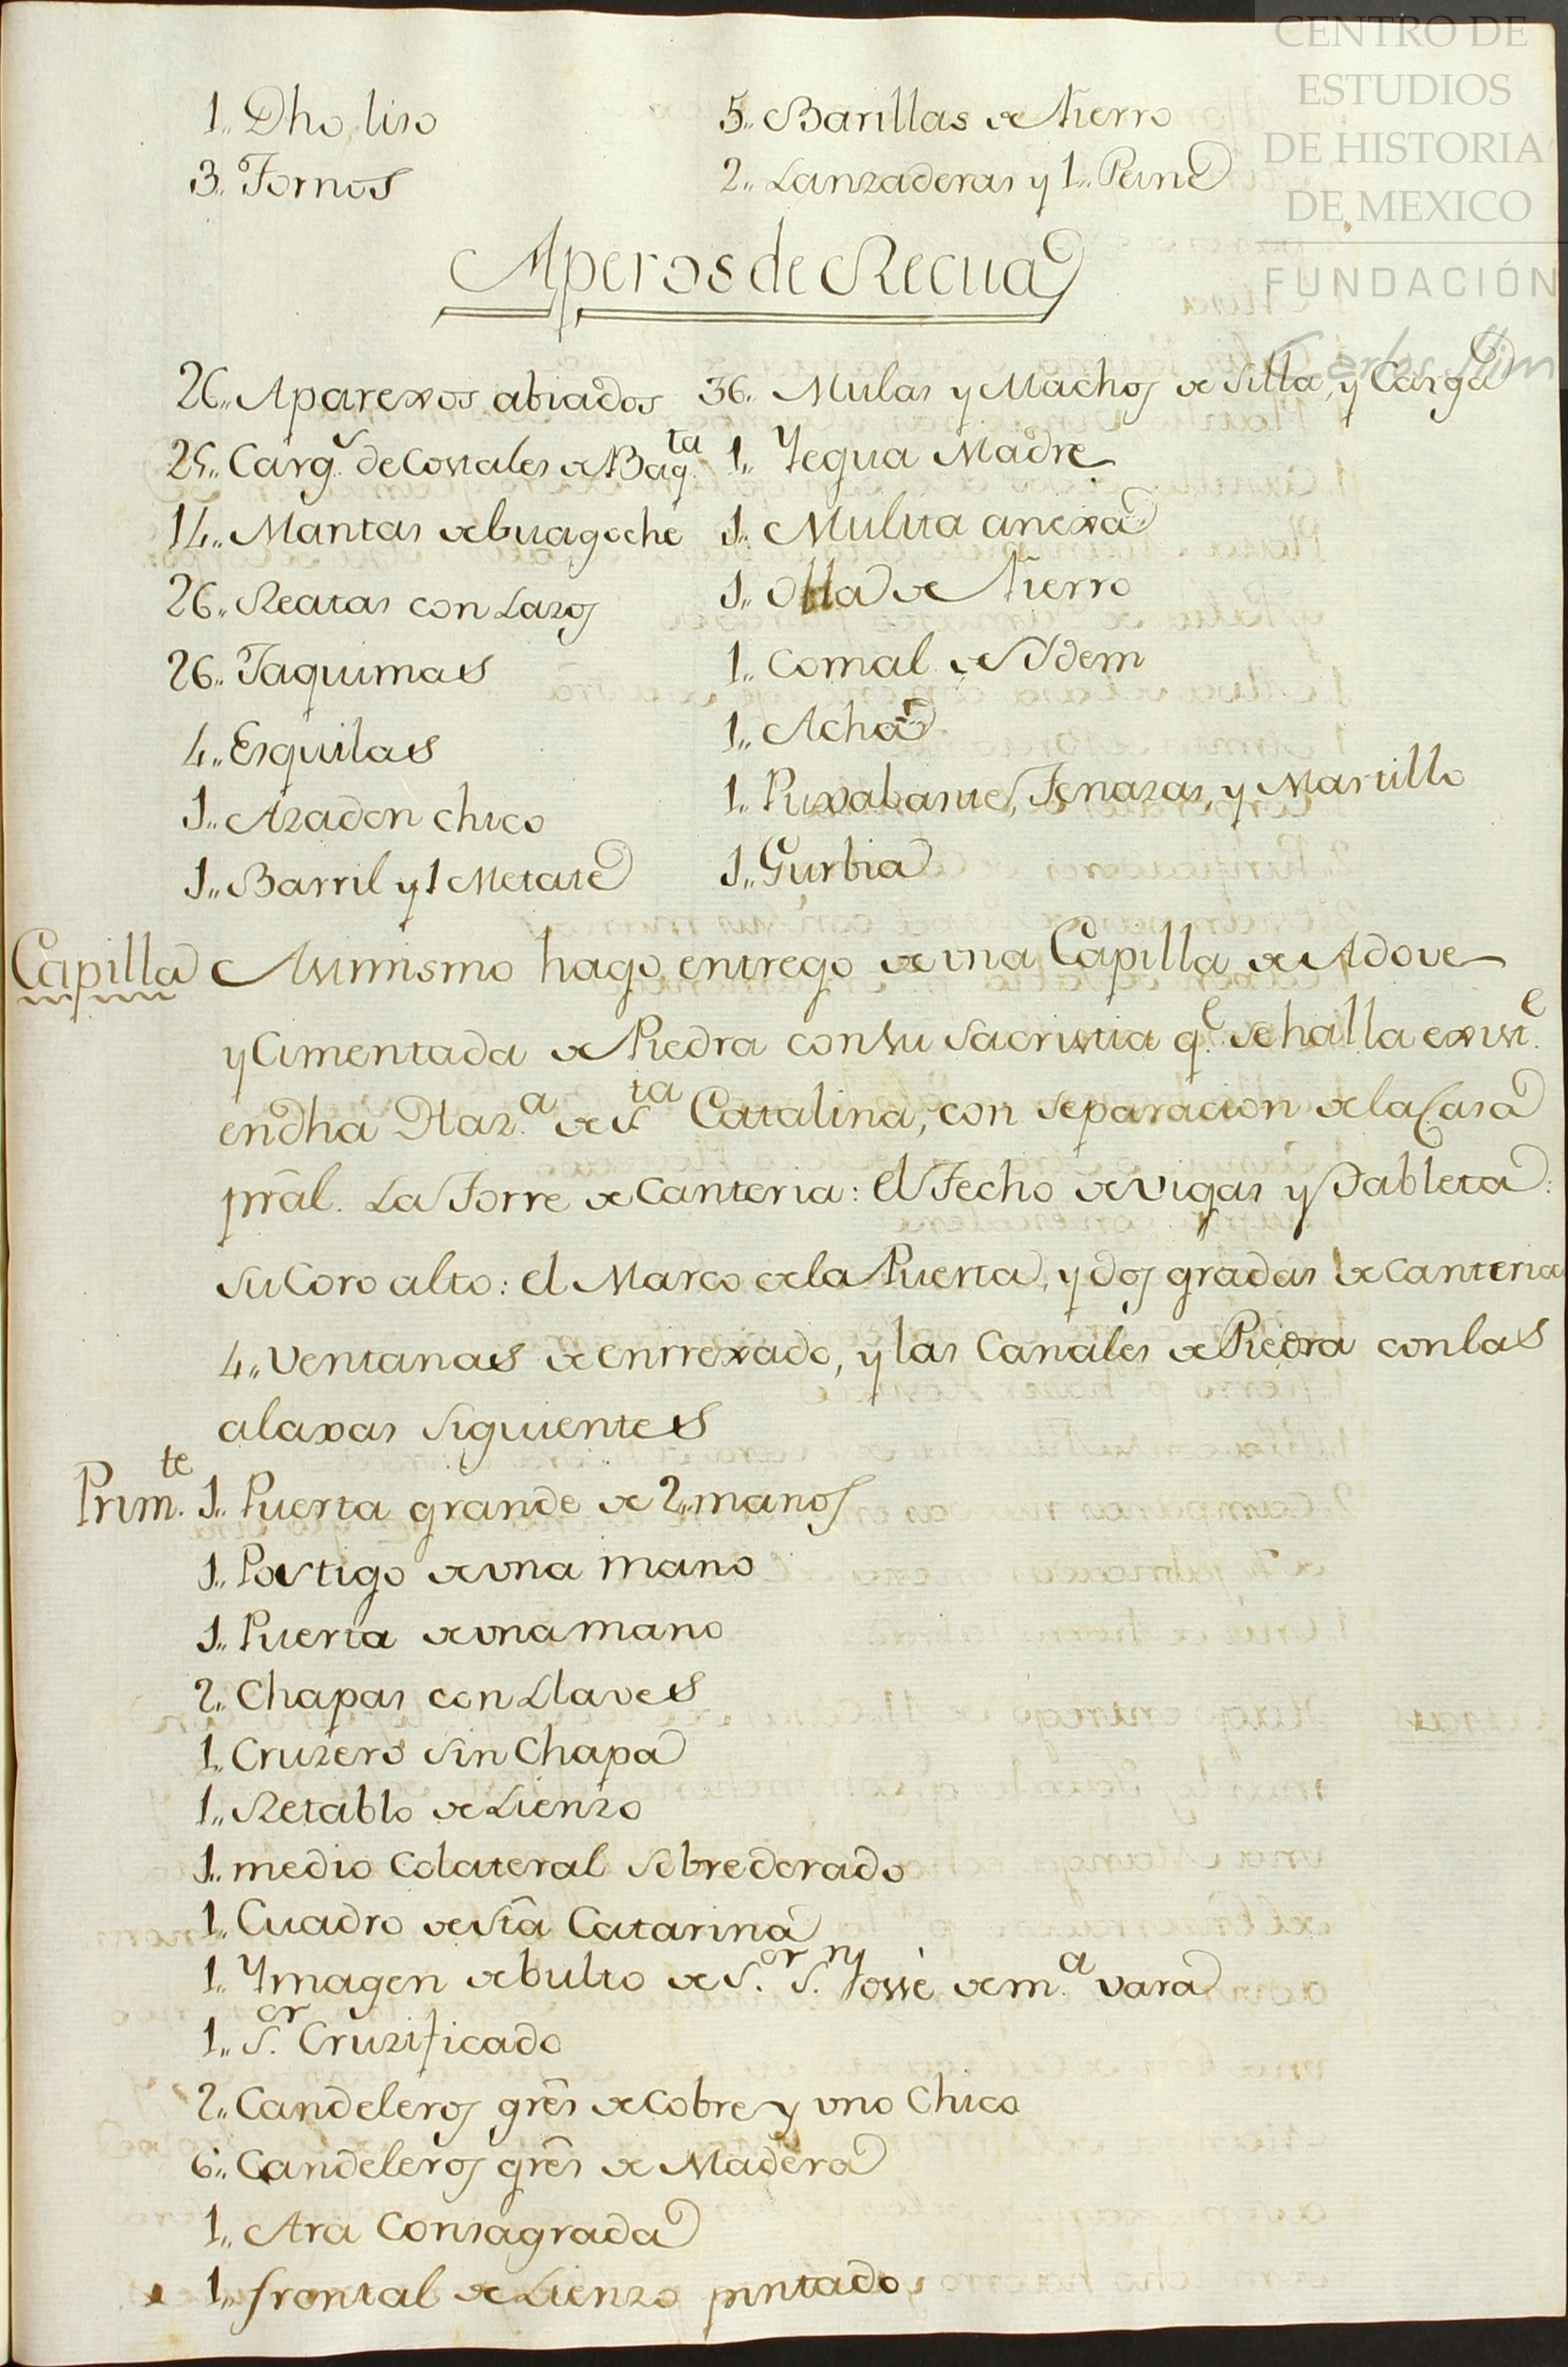 CENTRO DE
ESTUDIOS
DE HISTORIA
DE MEXICO
FUNDACIÓN
Carlos Slim
1,, Dho liso
3,, Tornos
5,, Barillas de fierro
2,, Lanzaderas y 1,, Peine
Aperos de Recua
26,, Aparexos abiados
25,, Carg.s de Costales de Baq.ta
14,, Mantas de buagoche
26,, Reatas con Lazos
26,, Taquimas
4,, Esquilas
1,, Azadon chico
1,, Barril y 1 Metate
36,, Mulas y Machos de Silla, y Carga
1,, Yegua Madre
1,, Mulita anexa
1,, Olla de fierro
1,, Comal de Ydem
1,, Acha
1,, Puxabante, Tenazas, y Martillo
1,, Gurbia
Capilla Asimismo hago entrego de una Capilla de Adove
y Cimentada de Piedra con su Sacristia q.e se halla exist.e
en dha Haz.a de S.ta Catalina, con separacion de la Casa
prãl. La Torre de Canteria: el Techo de vigas y Tableta:
su Coro alto: el Marco de la Puerta, y dos gradas de Canteria
4,, Ventanas de enrrexado, y las Canales de Piedra con las
alaxas siguientes
Prim.te 1,, Puerta grande de 2,, manos
1,, Postigo de una mano
1,, Puerta de una mano
2,, Chapas con Llaves
1,, Cruzero sin Chapa
1,, Retablo de Lienzo
1,, medio Colateral sobredorado
1,, Cuadro de Stã Catarina
1,, Ymagen de bulto de S.or S.n Jossè de m.a vara
1,, S.or Cruzificado
2,, Candeleros grẽs de Cobre y uno Chico
6,, Candeleros grẽs de Madera
1,, Ara Consagrada
1,, frontal de Lienzo pintado